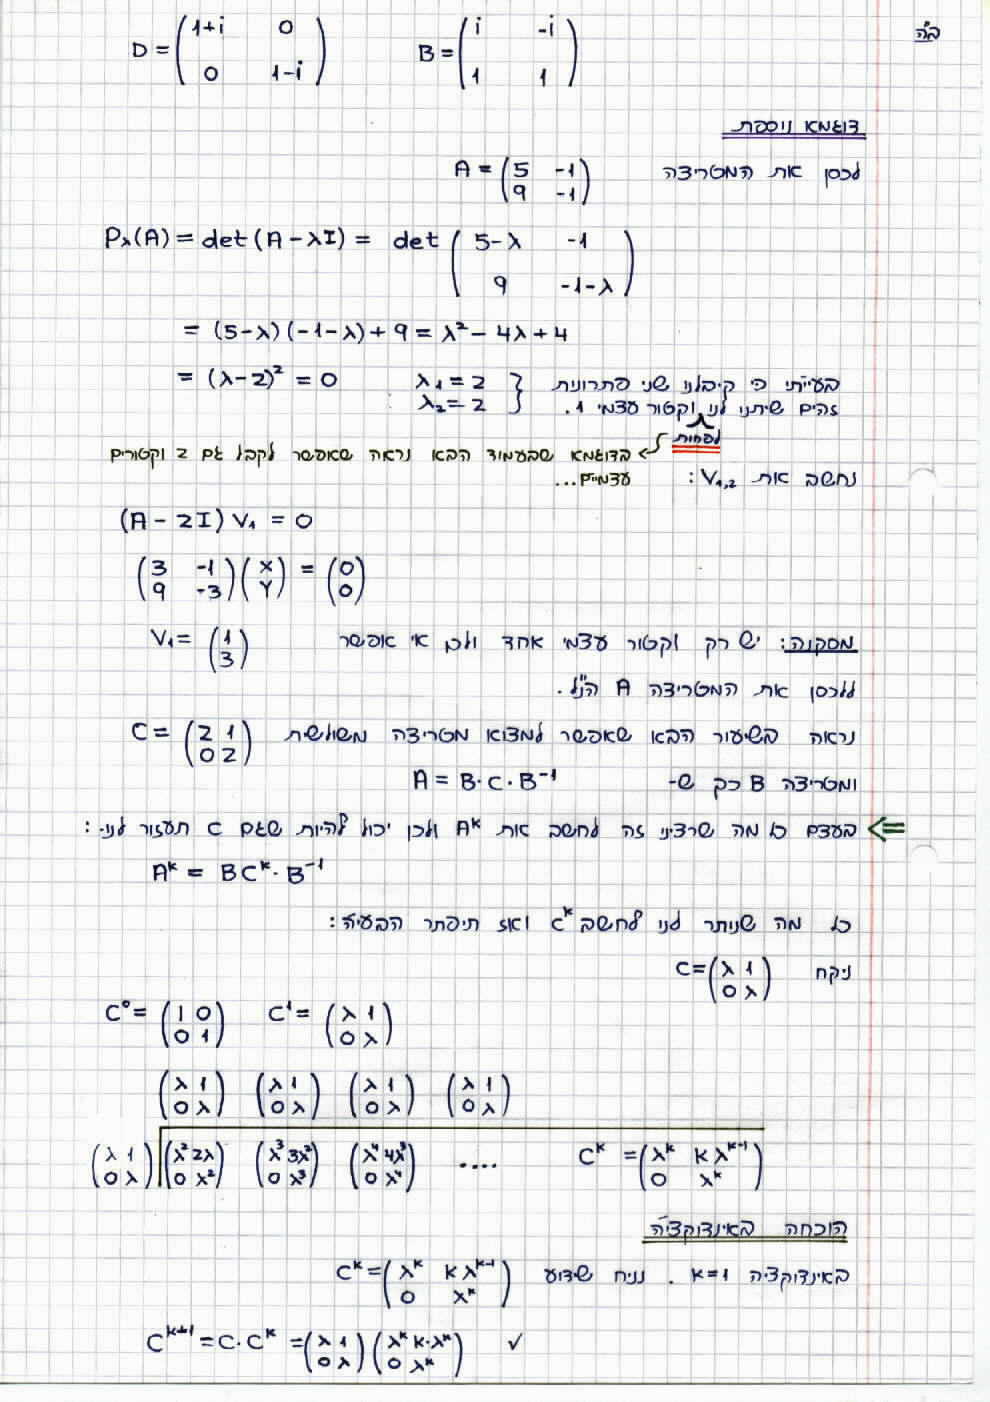 ב"ה
D = (1+i 0 / 0 1-i) B = (i -i / 1 1)
דוגמא נוספת
לכסן את המטריצה A = (5 -1 / 9 -1)
Pλ(A) = det(A-λI) = det (5-λ -1 / 9 -1-λ)
= (5-λ)(-1-λ)+9 = λ² - 4λ + 4
= (λ-2)² = 0 λ₁ = 2 } בעייתי כי קיבלנו שני פתרונות
λ₂ = 2 } זהים שיתנו לנו וקטור עצמי 1.
לפחות
בדוגמא שבעמוד הבא נראה שאפשר לקבל גם 2 וקטורים
עצמיים...
נחשב את V₁,₂ :
(A - 2I) V₁ = 0
(3 -1 / 9 -3)(X / Y) = (0 / 0)
V₁ = (1 / 3) מסקנה: יש רק וקטור עצמי אחד ולכן אי אפשר
ללכסן את המטריצה A הנ"ל.
נראה בשיעור הבא שאפשר למצוא מטריצה משולשית C = (2 1 / 0 2)
ומטריצה B כך ש- A = B·C·B⁻¹
⇐ בעצם כל מה שרצינו זה לחשב את Aᵏ ולכן יכול להיות שגם C תעזור לנו :
Aᵏ = BCᵏ·B⁻¹
כל מה שנותר לנו לחשב Cᵏ ואז תיפתר הבעיה :
ניקח C = (λ 1 / 0 λ)
C⁰ = (1 0 / 0 1) C¹ = (λ 1 / 0 λ)
(λ 1 / 0 λ) (λ 1 / 0 λ) (λ 1 / 0 λ) (λ 1 / 0 λ)
(λ 1 / 0 λ) (λ² 2λ / 0 λ²) (λ³ 3λ² / 0 λ³) (λ⁴ 4λ³ / 0 λ⁴) .... Cᵏ = (λᵏ Kλᵏ⁻¹ / 0 λᵏ)
הוכחה באינדוקציה
באינדוקציה K=1 . נניח שידוע Cᵏ = (λᵏ Kλᵏ⁻¹ / 0 λᵏ)
Cᵏ⁺¹ = C·Cᵏ = (λ 1 / 0 λ)(λᵏ K·λᵏ / 0 λᵏ) ✓